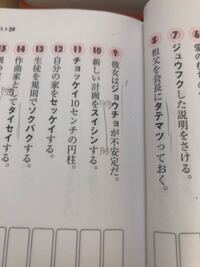 スト29
7 ジュウフクした説明をさける。
8 祖父を会長にタテマツっておく。
9 彼女はジョウチョが不安定だ。
10 新しい計画をスイシンする。
11 チョッケイ10センチの円柱。
12 自分の家をセッケイする。
13 生徒を規則でソクバクする。
14 作曲家としてタイセイする。
15